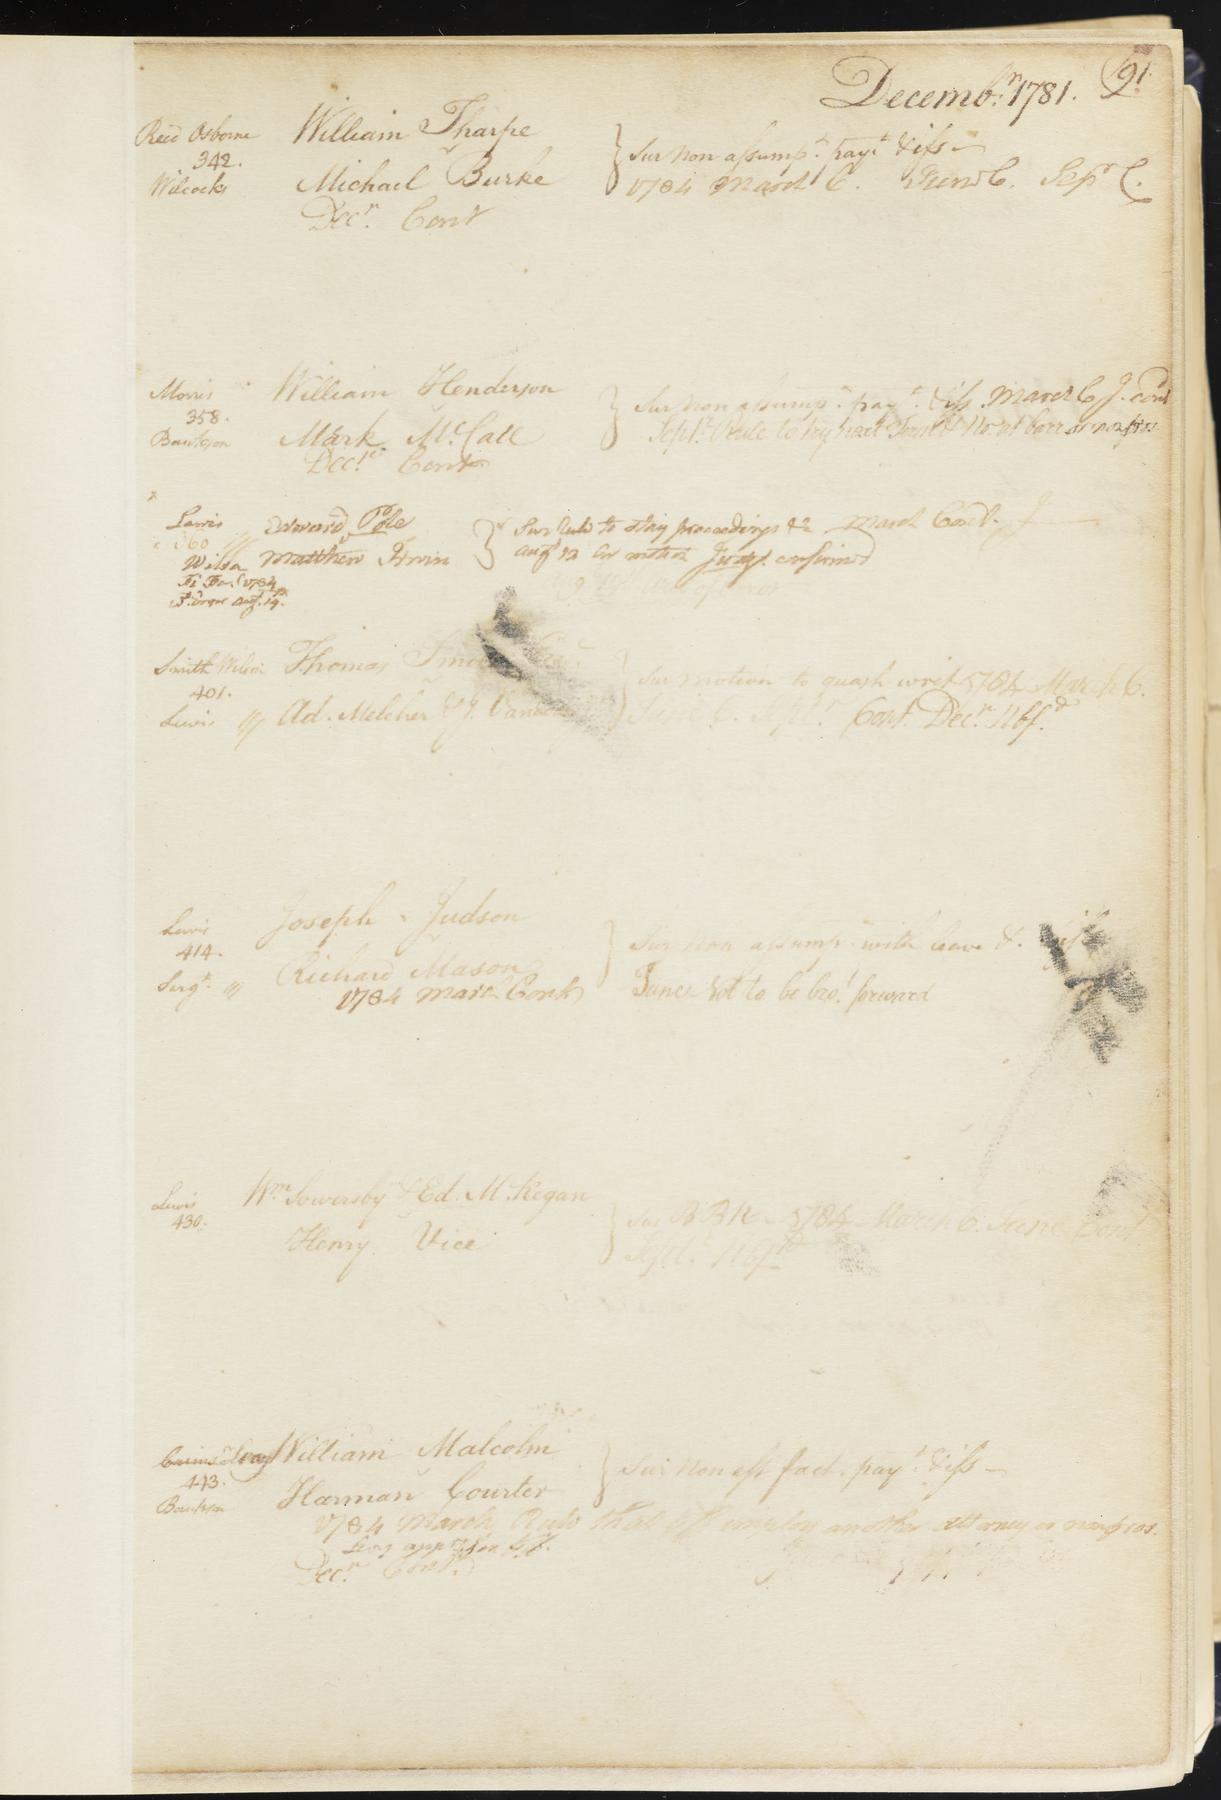 Decemb.r 1781. 91.
Reed Osborne William Tharpe
342. } Sur non assump.t paym.t & iss
Wilcocks Michael Burke 1784 March C. June C. Sep.r C.
Dec.r Cont
Morris William Henderson } Sur non assump.t pay.t & iss. March C J. Cont
358.
Bankson Mark Mc.Call Sept.r Rule to try next Term No. at barr or non pros.
Dec.r Cont
Lewis Edward Pole } Sur Rule to stay proceedings &c March Cont. J
360
Wilson Matthew Irwin Aug.t 12 on motion Judg.t confirmed
Fi Fa. 1784
Smith Wilson Thomas } Sur motion to quash writ 1784 March C.
401.
Lewis Ad. Melcher & June C. Sept.r Cont. Dec.r Nbf.d
Lewis Joseph Judson } Sur non assump.t with leave &.
414.
Serg.t Richard Mason
1784 March Cont June Not to be bro.t forward
Lewis W.m Sowersby & Ed. Mc.Kegan } Sur 1784 March C. June Cont
430.
Henry Vice Sept.r Nbf.d
William Malcolm } Sur Non est fact. pay.t & iss
443.
Bankson Harman Courter
1784 March Rule that pff employ another attorney or non pros.
Levy app.r for pff.
Dec.r Cont.